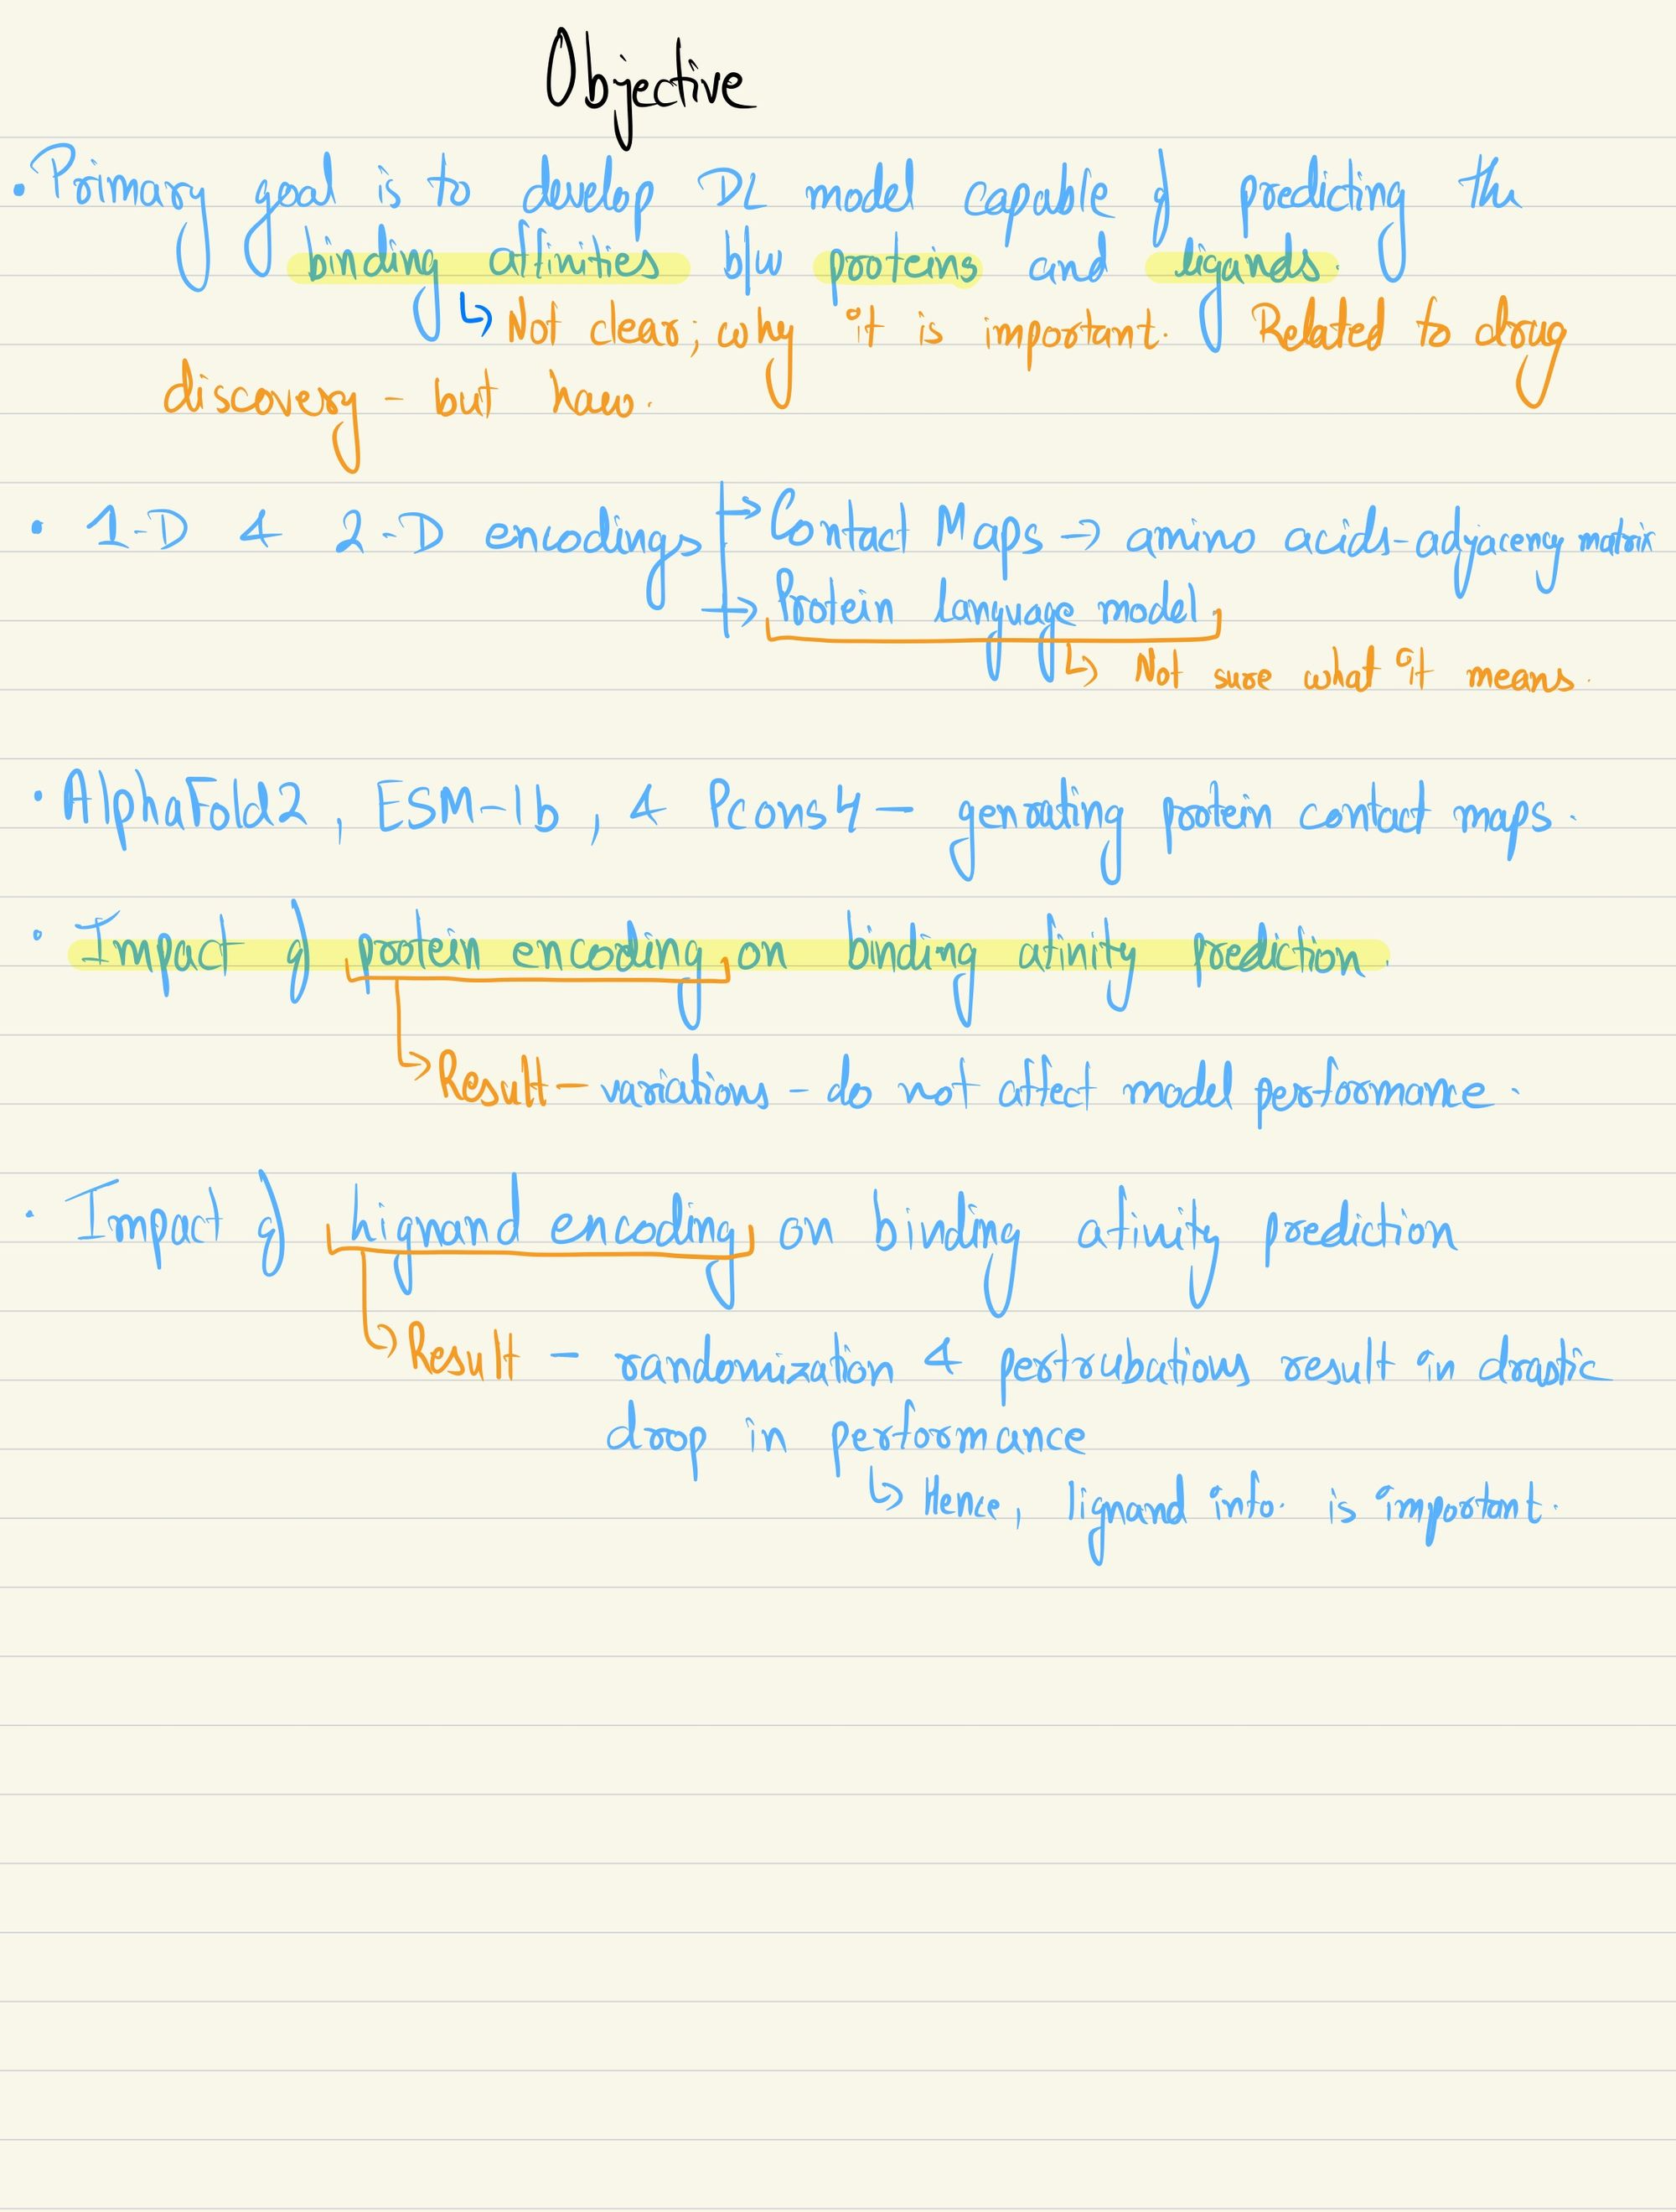 Objective
• Primary goal is to develop DL model capable of predicting the
binding affinities b/w proteins and ligands.
↳ Not clear; why it is important. Related to drug
discovery - but how.
• 1-D & 2-D encodings → Contact Maps → amino acids - adjacency matrix
→ Protein language model
↳ Not sure what it means.
• AlphaFold2, ESM-1b, & Pcons4 - generating protein contact maps.
• Impact of protein encoding on binding afinity prediction.
↳ Result - variations - do not affect model performance.
• Impact of Lignand encoding on binding afinity prediction
↳ Result - randomization & pertrubations result in drastic
drop in performance
↳ Hence, lignand info. is important.